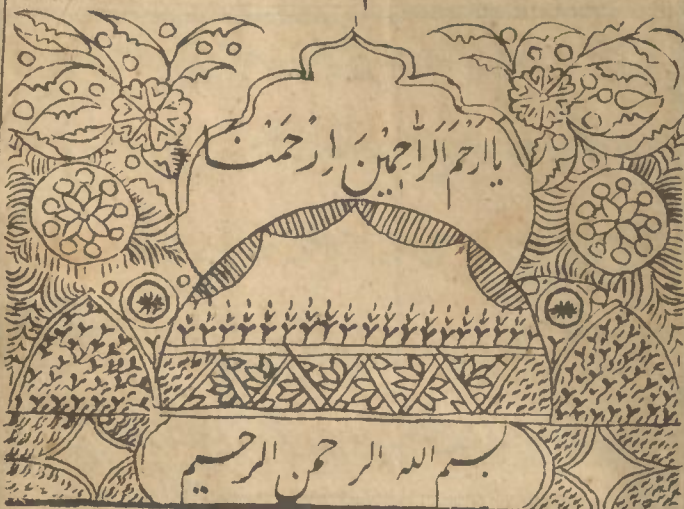 يا ارحم الراحمين ارحمنا
بسم الله الرحمن الرحيم